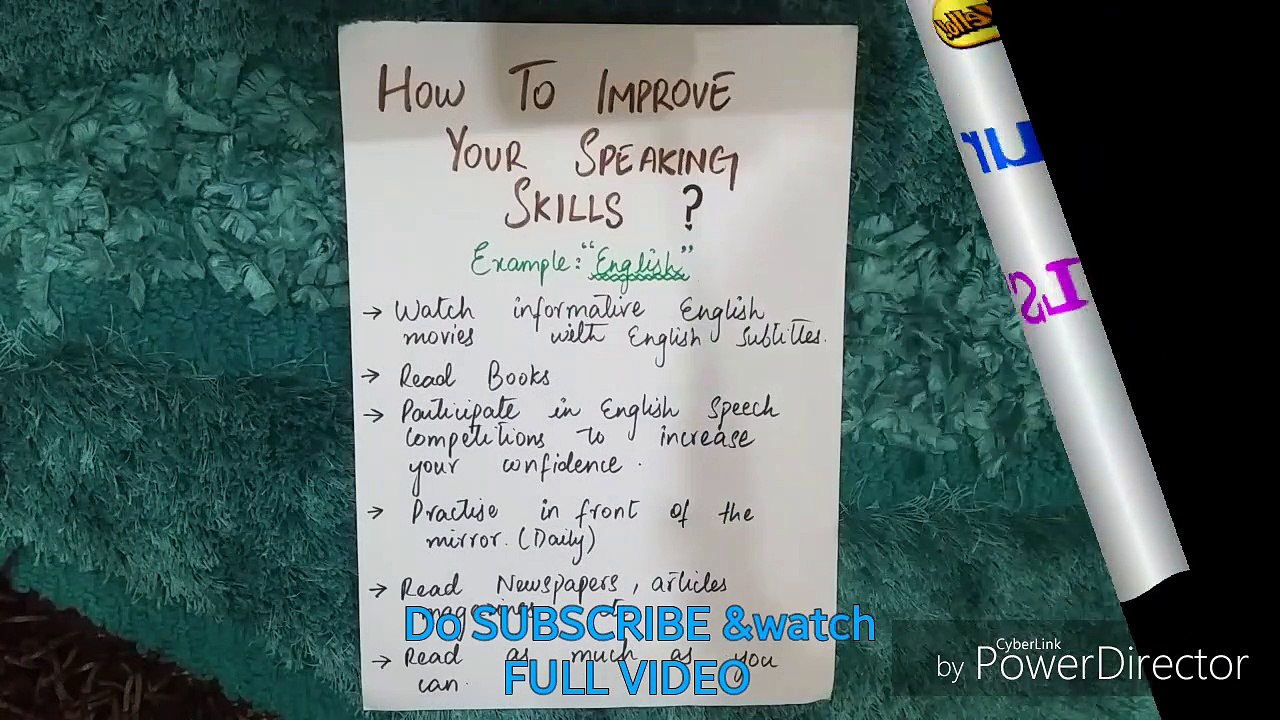 HOW TO IMPROVE
YOUR SPEAKING
SKILLS ?
Example: "English"
→ Watch informative English
movies with English Subtitles.
→ Read Books
→ Participate in English Speech
competitions to increase
your confidence.
→ Practise in front of the
mirror. (Daily)
→ Read Newspapers, articles
magazines
→ Read as much as you
can.
Do SUBSCRIBE &watch
FULL VIDEO
CyberLink
by PowerDirector